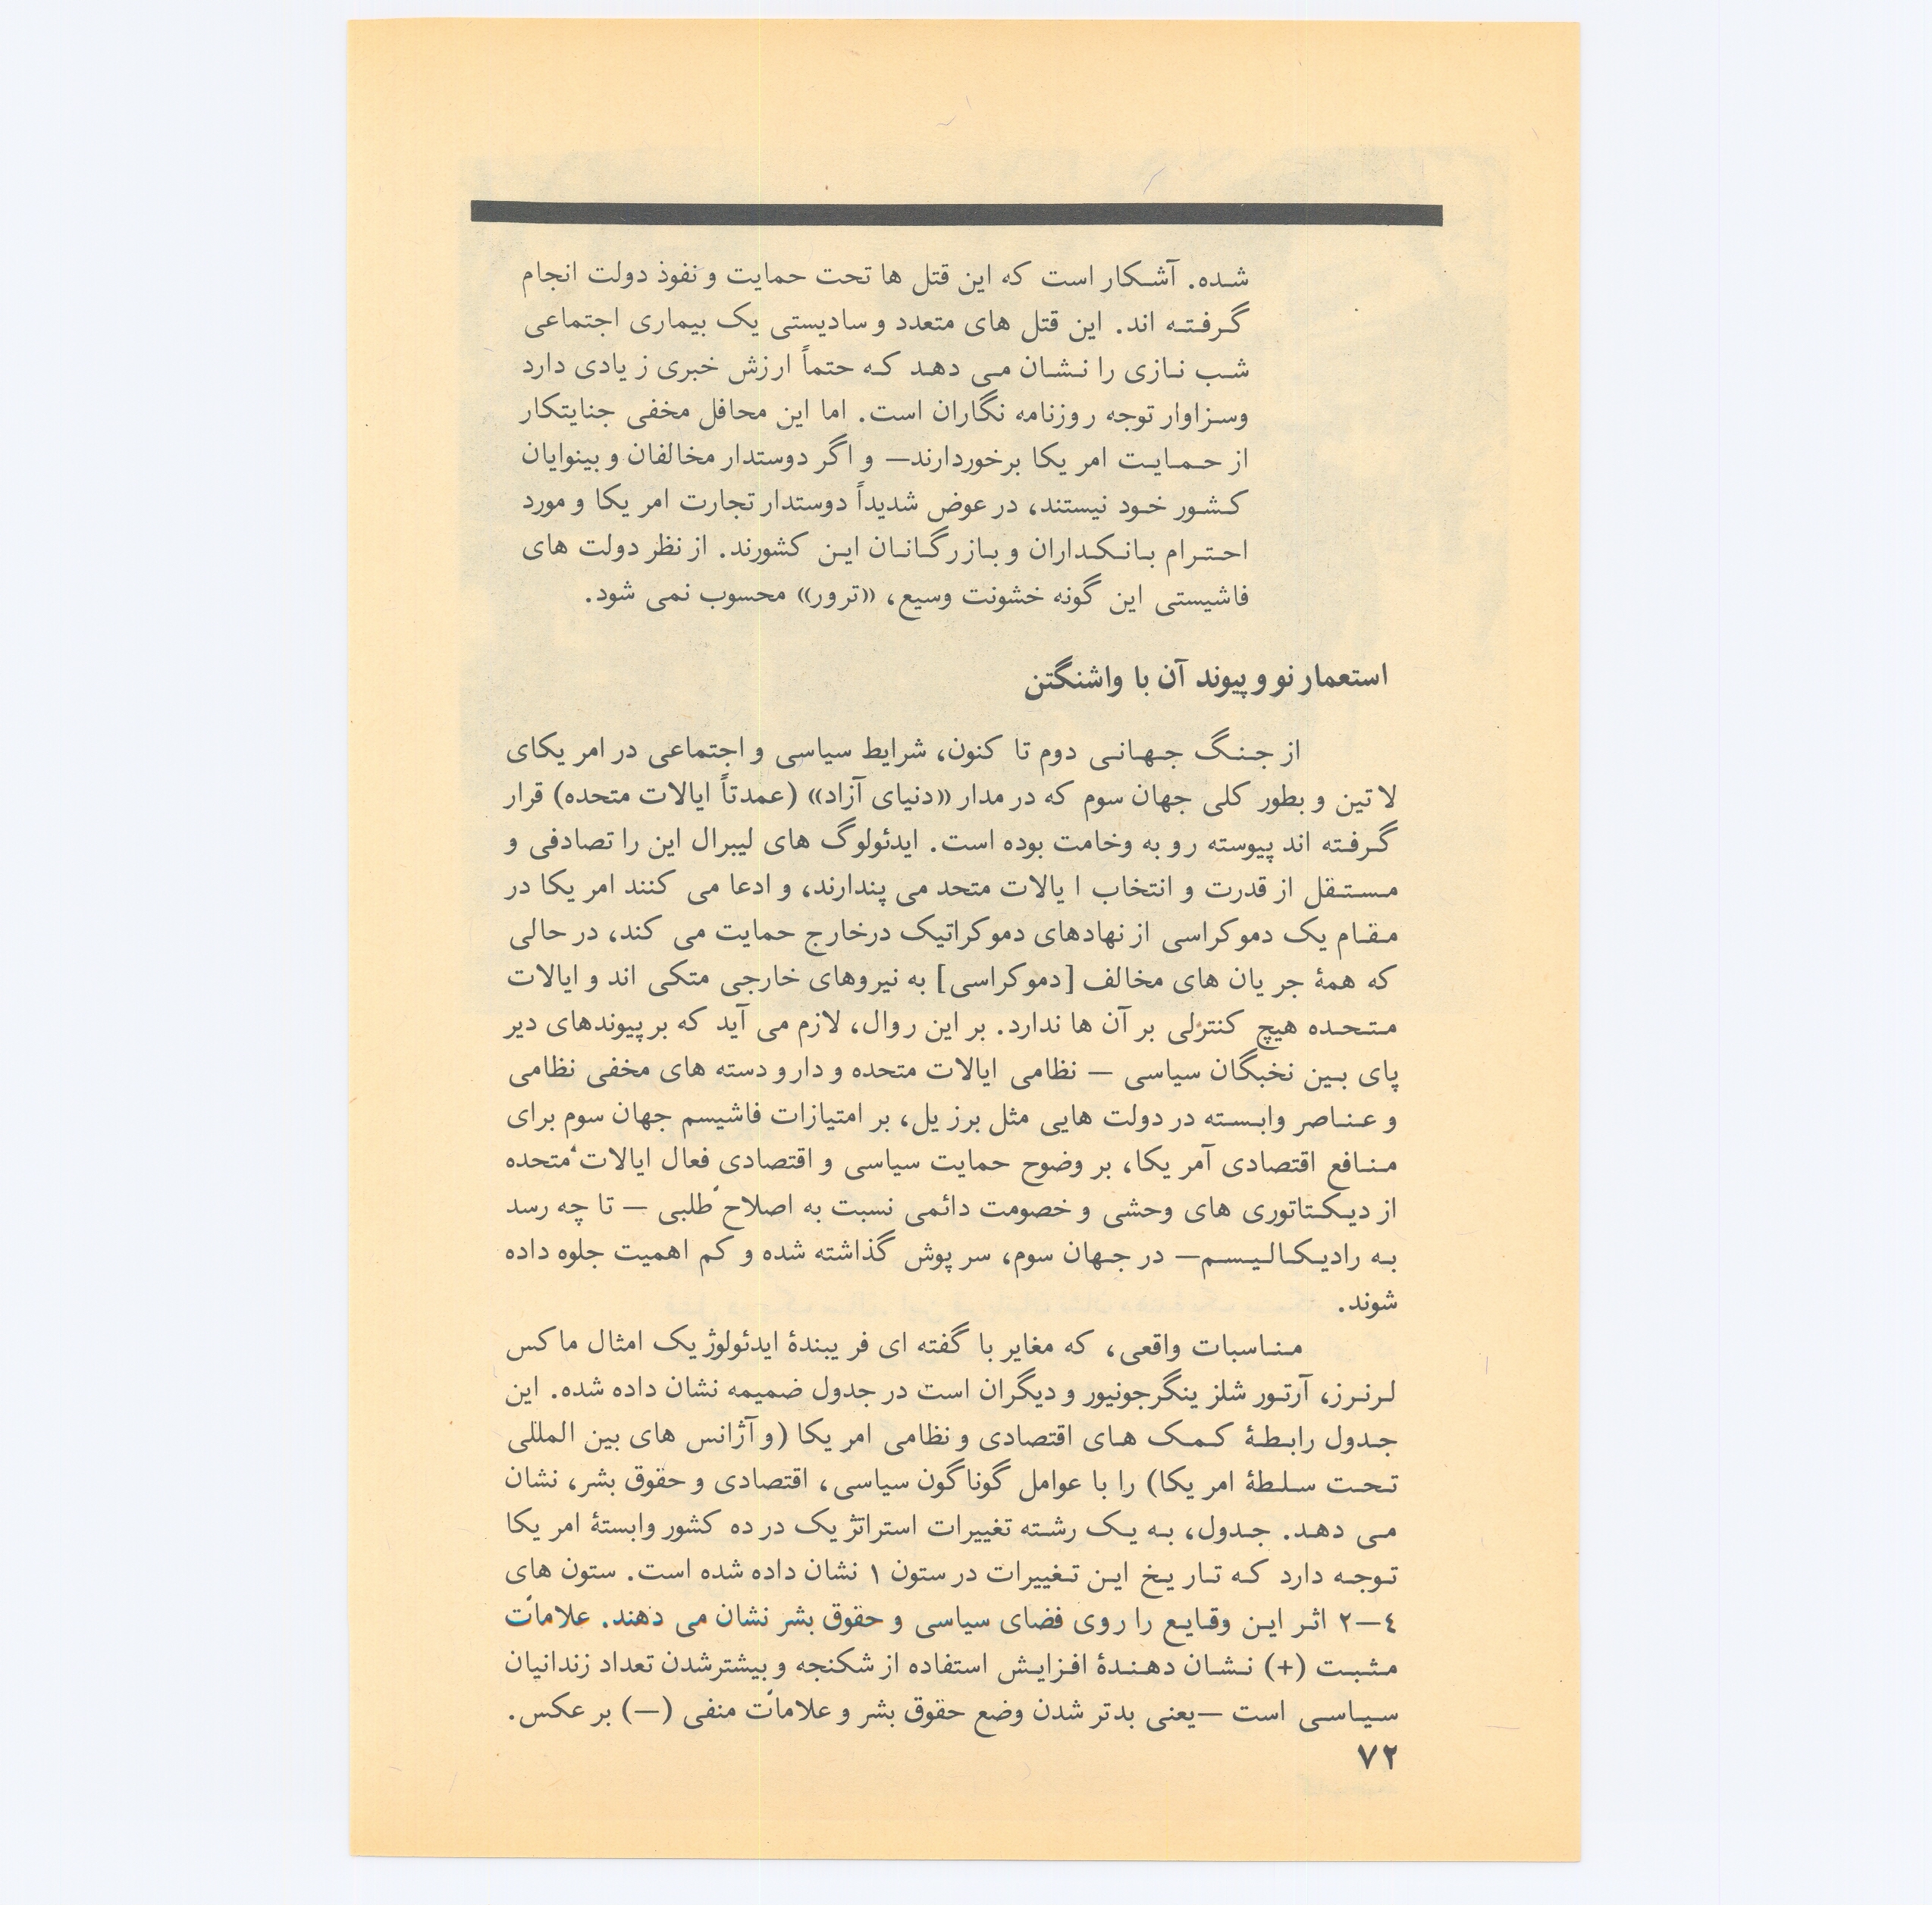 شده. آشکار است که این قتل ها تحت حمایت و نفوذ دولت انجام
گرفته اند. این قتل های متعدد و سادیستی یک بیماری اجتماعی
شب نازی را نشان می دهد که حتماً ارزش خبری زیادی دارد
وسزاوار توجه روزنامه نگاران است. اما این محافل مخفی جنایتکار
از حمایت امریکا برخوردارند— و اگر دوستدار مخالفان و بینوایان
کشور خود نیستند، در عوض شدیداً دوستدار تجارت امریکا و مورد
احترام بانکداران و بازرگانان این کشورند. از نظر دولت های
فاشیستی این گونه خشونت وسیع، «ترور» محسوب نمی شود.
استعمار نو و پیوند آن با واشنگتن
از جنگ جهانی دوم تا کنون، شرایط سیاسی و اجتماعی در امریکای
لاتین و بطور کلی جهان سوم که در مدار «دنیای آزاد» (عمدتاً ایالات متحده) قرار
گرفته اند پیوسته رو به وخامت بوده است. ایدئولوگ های لیبرال این را تصادفی و
مستقل از قدرت و انتخاب ایالات متحد می پندارند، و ادعا می کنند امریکا در
مقام یک دموکراسی از نهادهای دموکراتیک درخارج حمایت می کند، در حالی
که همهٔ جریان های مخالف [دموکراسی] به نیروهای خارجی متکی اند و ایالات
متحده هیچ کنترلی بر آن ها ندارد. بر این روال، لازم می آید که بر پیوندهای دیر
پای بین نخبگان سیاسی — نظامی ایالات متحده و دار و دسته های مخفی نظامی
و عناصر وابسته در دولت هایی مثل برزیل، بر امتیازات فاشیسم جهان سوم برای
منافع اقتصادی آمریکا، بر وضوح حمایت سیاسی و اقتصادی فعال ایالات متحده
از دیکتاتوری های وحشی و خصومت دائمی نسبت به اصلاح طلبی — تا چه رسد
به رادیکالیسم— در جهان سوم، سر پوش گذاشته شده و کم اهمیت جلوه داده
شوند.
مناسبات واقعی، که مغایر با گفته ای فریبندهٔ ایدئولوژیک امثال ماکس
لرنرز، آرتور شلزینگرجونیور و دیگران است در جدول ضمیمه نشان داده شده. این
جدول رابطهٔ کمک های اقتصادی و نظامی امریکا (و آژانس های بین المللی
تحت سلطهٔ امریکا) را با عوامل گوناگون سیاسی، اقتصادی و حقوق بشر، نشان
می دهد. جدول، به یک رشته تغییرات استراتژیک در ده کشور وابستهٔ امریکا
توجه دارد که تاریخ این تغییرات در ستون ۱ نشان داده شده است. ستون های
۲—٤ اثر این وقایع را روی فضای سیاسی و حقوق بشر نشان می دهند. علامات
مثبت (+) نشان دهندهٔ افزایش استفاده از شکنجه و بیشترشدن تعداد زندانیان
سیاسی است —یعنی بدتر شدن وضع حقوق بشر و علامات منفی (—) بر عکس.
۷۲